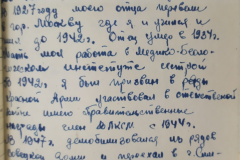 1927 году моего отца перевели
гор. Москву где я и учился и
до 1942г. Отец умер в 1934г.
моя работа в Медико-Биоло-
институте
1942г. я был призван в ряды
Армии участвовал в отечественной
имею правительственные
награды член ВЛКСМ с 1944г.
В 1947г. демобилизовался из рядов
Армии и приехал в г. Сим-